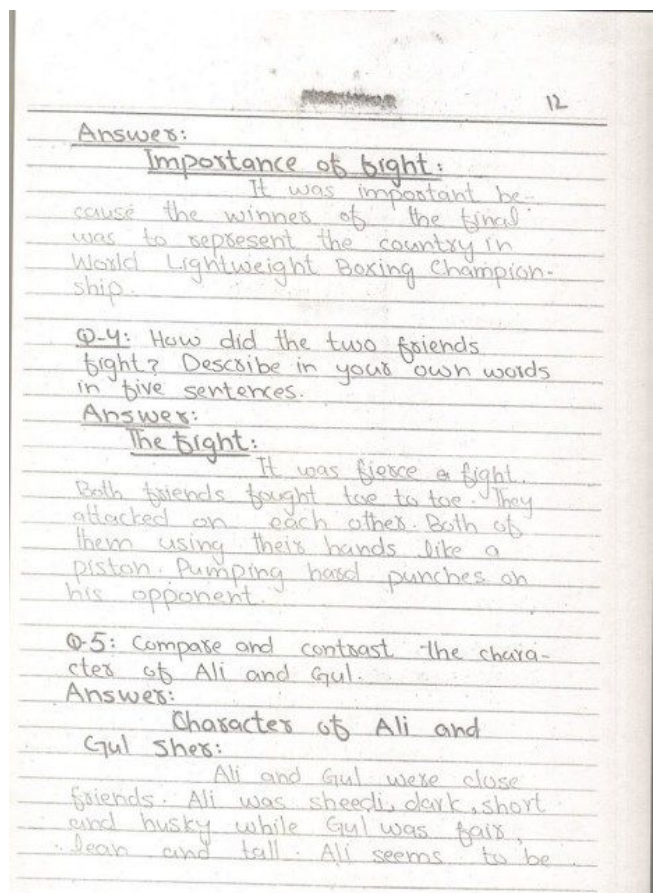 12
Answer:
Importance of fight:
It was important be-
cause the winner of the final
was to represent the country in
World Lightweight Boxing Champion-
ship.
Q-4: How did the two friends
fight? Describe in your own words
in five sentences.
Answer:
The fight:
It was fierce a fight.
Both friends fought toe to toe. They
attacked on each other. Both of
them using their hands like a
piston. Pumping hard punches on
his opponent.
Q-5: Compare and contrast the chara-
cter of Ali and Gul.
Answer:
Character of Ali and
Gul Sher:
Ali and Gul were close
friends. Ali was sheedi, dark, short
and husky while Gul was fair,
lean and tall. Ali seems to be